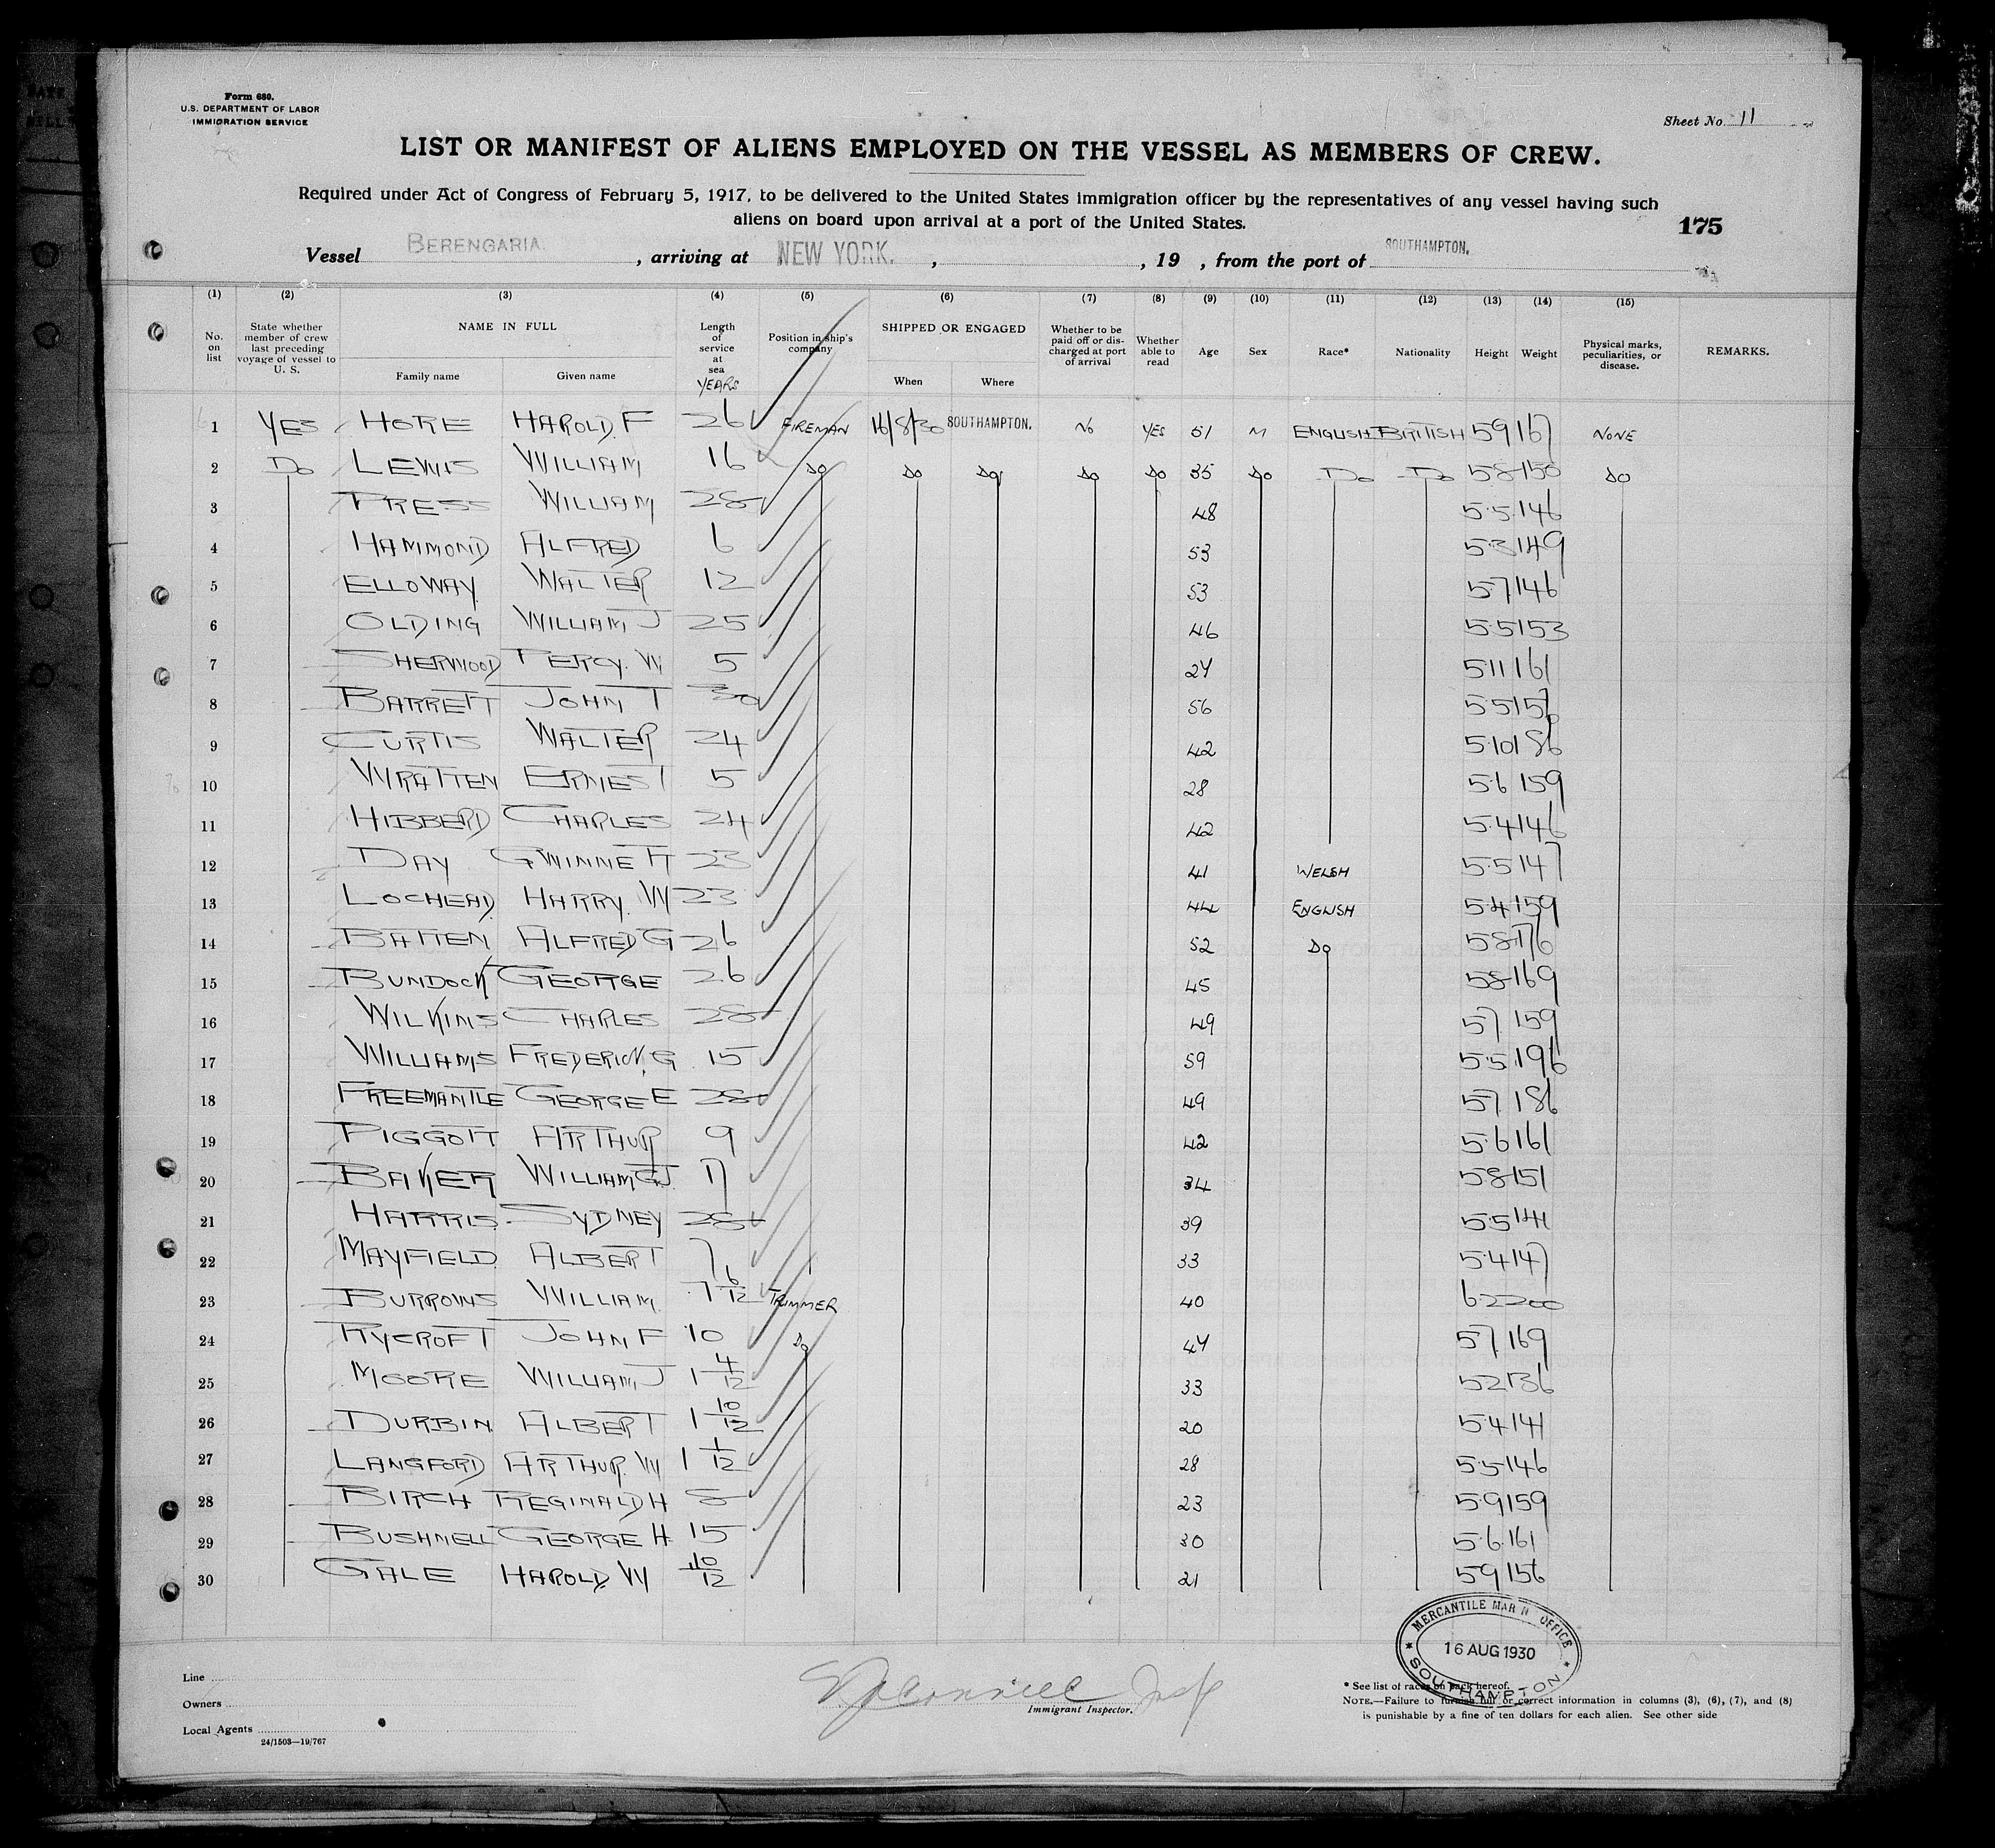 Form 680.
U.S. DEPARTMENT OF LABOR
IMMIGRATION SERVICE
Sheet No. 11
LIST OR MANIFEST OF ALIENS EMPLOYED ON THE VESSEL AS MEMBERS OF CREW.
Required under Act of Congress of February 5, 1917, to be delivered to the United States immigration officer by the representatives of any vessel having such
aliens on board upon arrival at a port of the United States.
175
Vessel BERENGARIA. , arriving at NEW YORK. , , 19 , from the port of SOUTHAMPTON.
(1) (2) (3) (4) (5) (6) (7) (8) (9) (10) (11) (12) (13) (14) (15)
No. on list State whether member of crew last preceding voyage of vessel to U. S. NAME IN FULL Family name Given name Length of service at sea YEARS Position in ship's company SHIPPED OR ENGAGED When Where Whether to be paid off or discharged at port of arrival Whether able to read Age Sex Race* Nationality Height Weight Physical marks, peculiarities, or disease. REMARKS.
1 YES HORE HAROLD. F 26 FIREMAN 16/8/30 SOUTHAMPTON. NO YES 51 M ENGLISH BRITISH 59 167 NONE
2 DO LEWIS WILLIAM 16 DO DO DO DO DO 35 DO DO DO 58 150 DO
3 PRESS WILLIAM 28 48 5.5 146
4 HAMMOND ALFRED 6 53 5.3 149
5 ELLOWAY WALTER 12 53 5.7 146
6 OLDING WILLIAM J 25 46 5.5 153
7 SHERWOOD PERCY. W 5 24 511 161
8 BARRETT JOHN T 30 56 5.5 157
9 CURTIS WALTER 24 42 5.10 186
10 WRATTEN ERNEST 5 28 5.6 159
11 HIBBERD CHARLES 24 42 5.4 146
12 DAY GWINNETT 23 41 WELSH 5.5 147
13 LOCHEAD HARRY. W 23 44 ENGLISH 5.4 159
14 BATTEN ALFRED G 26 52 DO 58 176
15 BUNDOCK GEORGE 26 45 58 169
16 WILKINS CHARLES 28 49 57 159
17 WILLIAMS FREDERICK. G 15 59 5.5 196
18 FREEMANTLE GEORGE E 28 49 57 186
19 PIGGOTT ARTHUR 9 42 5.6 161
20 BAKER WILLIAM G J 17 34 58 151
21 HARRIS. SYDNEY 28 39 5.5 141
22 MAYFIELD ALBERT 7 33 5.4 147
23 BURROWS WILLIAM. 7 6/12 TRIMMER 40 6.2 200
24 RYCROFT JOHN F 10 DO 47 57 169
25 MOORE WILLIAM J 1 4/12 33 52 136
26 DURBIN ALBERT 1 10/12 20 5.4 141
27 LANGFORD ARTHUR. W 1 1/12 28 5.5 146
28 BIRCH REGINALD H 8 23 5.9 159
29 BUSHNELL GEORGE H. 15 30 5.6. 161
30 GALE HAROLD. W 10/12 21 59 156
MERCANTILE MARINE OFFICE
16 AUG 1930
SOUTHAMPTON
Line
Owners
Local Agents
24/1503—19/767
Immigrant Inspector.
* See list of races on back hereof.
NOTE.—Failure to furnish full or correct information in columns (3), (6), (7), and (8)
is punishable by a fine of ten dollars for each alien. See other side